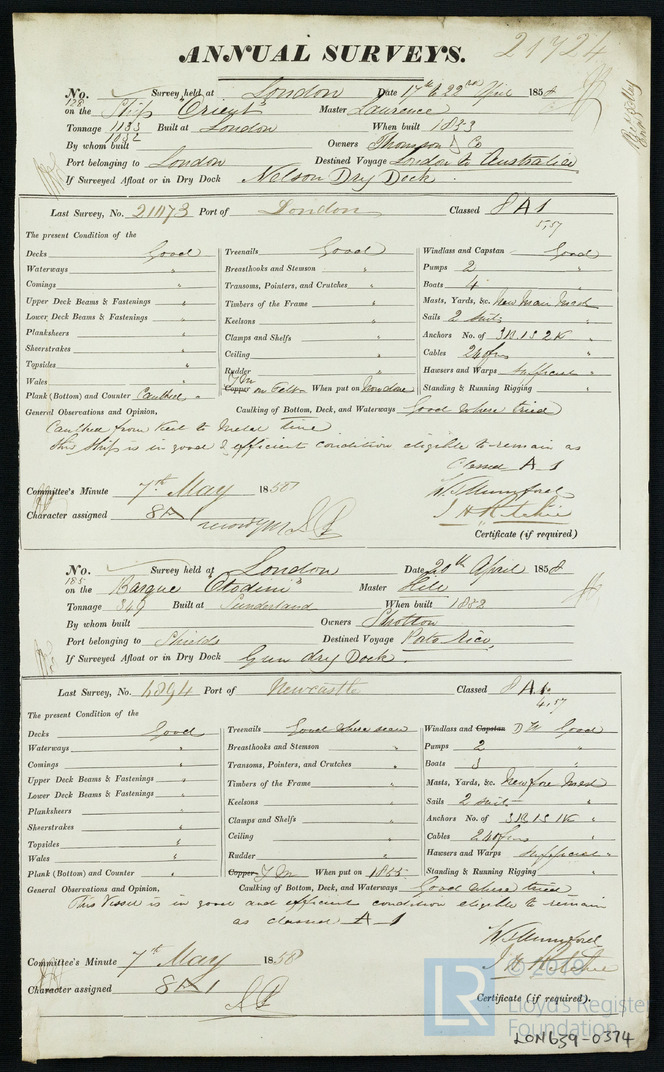 ANNUAL SURVEYS. 21724
No. Survey held at London Date 17th & 22nd April 1858
128 on the Ship "Orient" Master Laurence
Tonnage 1183 1032 Built at London When built 1853
By whom built Owners Thomson & Co
Port belonging to London Destined Voyage London to Australia
If Surveyed Afloat or in Dry Dock Nelson Dry Dock.
Last Survey, No. 21073 Port of London Classed 8 A 1
5,57
The present Condition of the
Decks Good
Waterways "
Comings "
Upper Deck Beams & Fastenings "
Lower Deck Beams & Fastenings "
Planksheers "
Sheerstrakes "
Topsides "
Wales "
Plank (Bottom) and Counter Caulked "
Treenails Good
Breasthooks and Stemson "
Transoms, Pointers, and Crutches "
Timbers of the Frame "
Keelsons "
Clamps and Shelfs "
Ceiling "
Rudder "
Copper Y M on Felt When put on Now done
Windlass and Capstan Good
Pumps 2 "
Boats 4 "
Masts, Yards, &c. New Main Mast
Sails 2 suits "
Anchors No. of 3B 1S 2K "
Cables 240 fms "
Hawsers and Warps sufficient "
Standing & Running Rigging "
General Observations and Opinion, Caulking of Bottom, Deck, and Waterways Good where tried
Caulked from Keel to Metal line
This Ship is in good & efficient condition eligible to remain as
Classed A 1
Committee's Minute 7th May 1858 W. S. Mumford
Character assigned 8 A 1 J H Ritchie
Certificate (if required)
No. Survey held at London Date 20th April 1858
185 on the Barque "Otodini" Master Hill
Tonnage 349 Built at Sunderland When built 1852
By whom built Owners Shotton
Port belonging to Shields Destined Voyage Porto Rico,
If Surveyed Afloat or in Dry Dock Gun dry Dock.
Last Survey, No. 4894 Port of Newcastle Classed 8 A 1.
4,57
The present Condition of the
Decks Good
Waterways "
Comings "
Upper Deck Beams & Fastenings "
Lower Deck Beams & Fastenings "
Planksheers "
Sheerstrakes "
Topsides "
Wales "
Plank (Bottom) and Counter "
Treenails Good where seen
Breasthooks and Stemson "
Transoms, Pointers, and Crutches "
Timbers of the Frame "
Keelsons "
Clamps and Shelfs "
Ceiling "
Rudder "
Copper Y M When put on 1855
Windlass and Capstan Good
Pumps 2 "
Boats 3 "
Masts, Yards, &c. New fore Mast
Sails 2 suits "
Anchors No. of 3B 1S 1K "
Cables 240 fms "
Hawsers and Warps sufficient "
Standing & Running Rigging "
General Observations and Opinion, Caulking of Bottom, Deck, and Waterways Good where tried
This Vessel is in good and efficient condition eligible to remain
as classed A 1
W. S. Mumford
Committee's Minute 7th May 1858 J H Ritchie
Character assigned 8 A 1
Certificate (if required).
LR © 2019 Lloyd's Register Foundation
LON639-0374